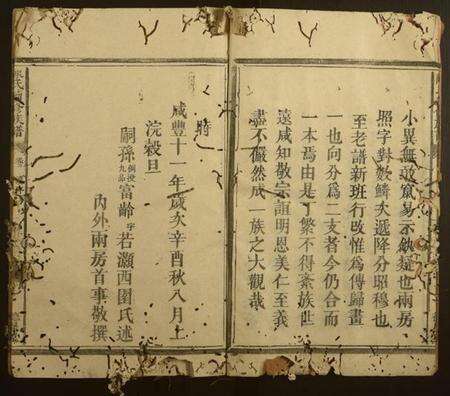 小異無敢竄易示缺疑也兩房
照字對數鱗次遞降分昭穆也
至老譜新班行改惟為傳歸畫
一也向分為二支者今仍合而
一本焉由是丁繁不得紊族世
遠咸知敬宗誼明恩美仁至義
盡不儼然成一族之大觀哉
時
咸豐十一年歲次辛酉秋八月上
浣穀旦
嗣孫 例授九品 富齡 字 若灝西園氏述
內外兩房首事敬撰
族譜